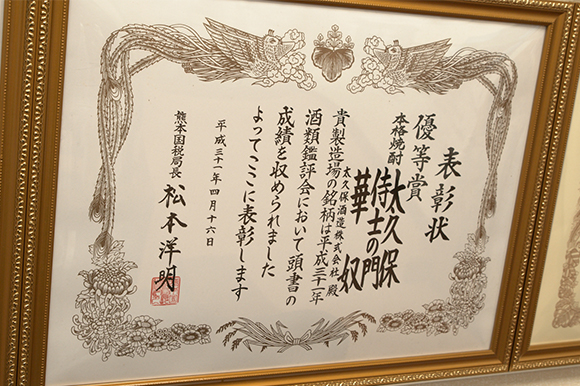 表彰状
優等賞
本格焼酎
太久保
侍士の門
華奴
太久保酒造株式会社 殿
貴製造場の銘柄は平成三十一年
酒類鑑評会において頭書の
成績を収められました
よってここに表彰します
平成三十一年四月十六日
熊本国税局長
松本洋明